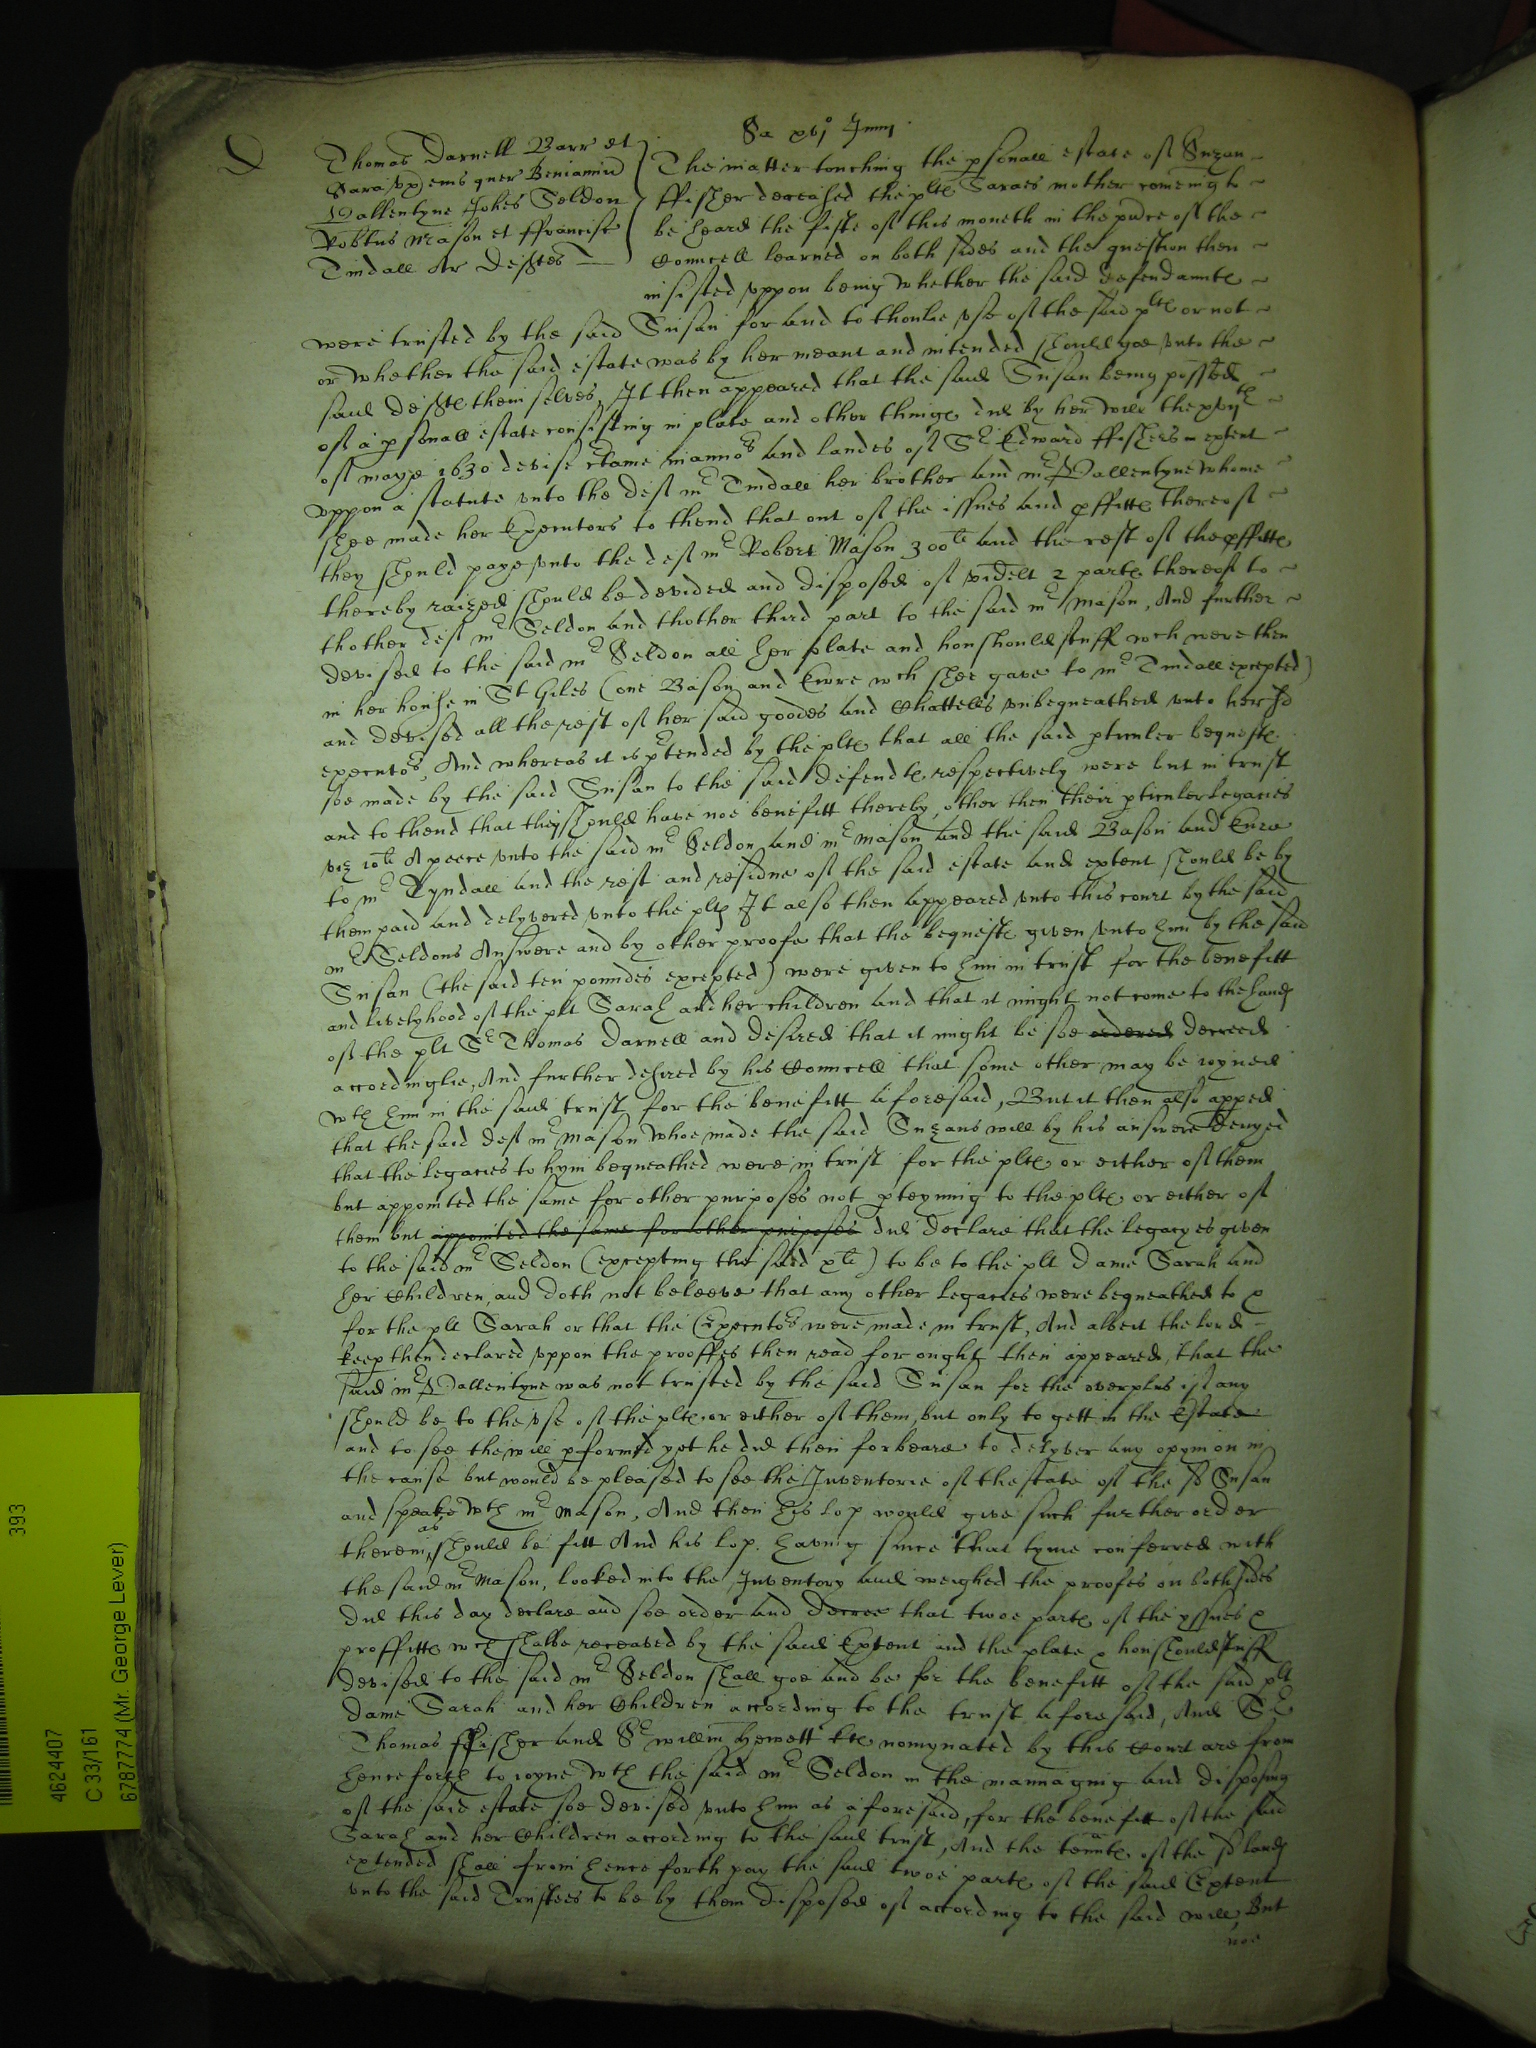 D
Sa xvj Junij
Thomas Darnell Barr et
Sara vx eius quer Beniamin
Vallentyne Johes Seldon
Robtus Mason et ffrancisc
Tindall Ar Defftes
The matter touching the psonall estate of Suzan
ffisher deceased the plte Saraes mother comeing to
be heard the fifte of this moneth in the pnce of the
Councell learned on both sides and the question then
insisted vppon being whether the said defendaunte
were trusted by the said Susan for and to thonlie vse of the said plte or not
or whether the said estate was by her meant and intended should goe vnto the
said defte themselves, It then appeared that the said Susan being possessed
of a psonall estate consisting in plate and other thinge did by her will the xvijth
of maye 1630 devise ctaine mannors and landes of Sr Edward ffishers in extent
vppon a statute vnto the deft mr Tindall her brother and mr Vallentyne whome
shee made her Executors to thend that out of the issues and pffitte thereof
they should paye vnto the deft mr Robert Mason 300li and the rest of the pffitte
thereby raized should be devided and disposed of vidlt 2 parte thereof to
thother deft mr Seldon and thother third part to the said mr Mason, And further
devised to the said mr Seldon all her plate and houshould stuff wch were then
in her house in St Giles (one Bason and Ewre wch shee gave to mr Tindall excepted)
and devised all the rest of her said goodes and Chattells vnbequeathed vnto her sd
executors, And whereas it is ptended by the plte that all the said pticuler bequeste
soe made by the said Susan to the said defendte respectively were but in trust
and to thend that they should have noe benefitt thereby, other then their pticuler Legacies
viz 10li A peece vnto the said mr Seldon and mr Mason and the said Bason and Ewre
to mr Tyndall and the rest and residue of the said estate and extent should be by
them paid and delyvered vnto the plte It also then appeared vnto this court by the said
mr Seldons Answere and by other proofe that the bequeste given vnto him by the said
Susan (the said ten poundes excepted) were given to him in trust for the benefitt
and livelyhood of the plt Sarah and her children and that it might not come to the hands
of the plt Sr Thomas Darnell and desired that it might be soe ordered decreed
accordinglie, And further desired by his Councell that some other may be ioyned
wth him in the said trust for the benefitt aforesaid, But it then also appeed
that the said deft mr Mason whoe made the said Suzans will by his answere denyed
that the legacies to hym bequeathed were in trust for the plte or either of them
but appointed the same for other purposes not pteyning to the plte or either of
them but appointed the same for other purposes did declare that the legacyes given
to the said mr Seldon (excepting the said xli) to be to the plt Dame Sarah and
her Children, and doth not beleeve that any other legacies were bequeathed to &
for the plt Sarah or that the Executors were made in trust, And albeit the lord
keep then declared vppon the prooffes then read for ought then appeared, that the
said mr Vallentyne was not trusted by the said Susan for the overplus if any
should be to the vse of the plte or either of them, but only to gett in the Estate
and to see the will pformed yet he did then forbeare to delyver any opynion in
the cause but would be pleased to see the Inventorie of thestate of the sd Susan
and speake wth mr Mason, And then his lop would give such further order
therein as should be fitt And his lop. having since that tyme conferred with
the said mr Mason, looked into the Inventory and weighed the proofes on both sides
did this day declare and soe order and decree that twoe parte of the yssues &
proffitte wch shalbe receaved by the said Extent and the plate & houshouldstuff
devised to the said mr Seldon shall goe and be for the benefitt of the said plt
dame Sarah and her Children according to the trust aforesaid, And Sr
Thomas ffisher and Sr willm Hewett kte nomynated by this Court are from
henceforth to ioyne wth the said mr Seldon in the mannaging and disposing
of the said estate soe devised vnto him as aforesaid, for the benefitt of the said
Sarah and her Children according to the said trust, And the tennte of the sd lands
extended shall from hence forth pay the said twoe parte of the said Extent
vnto the said Trustees to be by them disposed of according to the said will, But
noe
393
4624407
C 33/161
6787774 (Mr. George Lever)